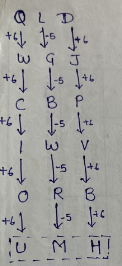 Q L D
+6 -5 +6
W G J
+6 -5 +6
C B P
+6 -5 +6
I W V
+6 -5 +6
O R B
+6 -5 +6
U M H